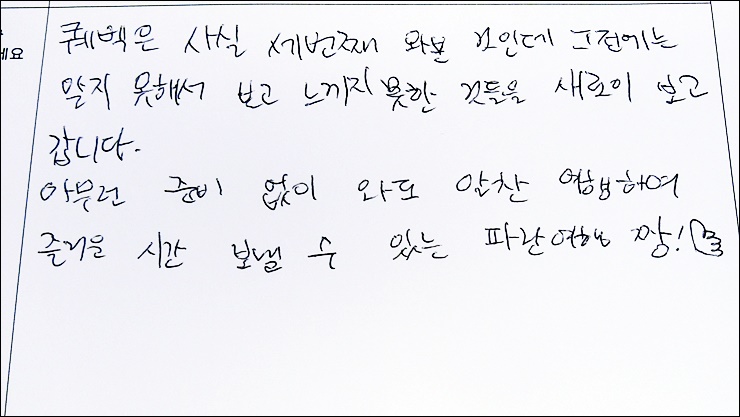 퀘벡은 사실 세번째 와본 것인데 그전에는
세요
알지 못해서 보고 느끼지 못한 것들을 새로이 보고
갑니다.
아무런 준비 없이 와도 알찬 여행하여
즐거운 시간 보낼 수 있는 파란여행 짱!